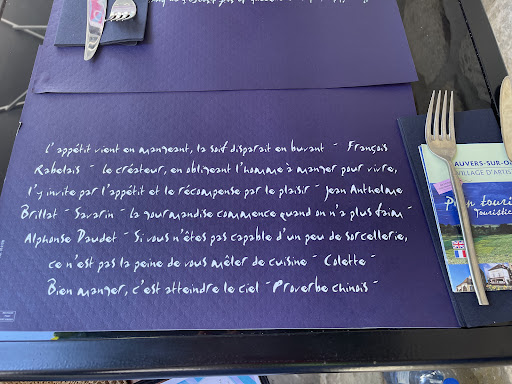 L'appétit vient en mangeant, la soif disparait en buvant - François
Rabelais - le créateur, en obligeant l'homme à manger pour vivre,
l'y invite par l'appétit et le récompense par le plaisir - Jean Anthelme
Brillat - Savarin - la gourmandise commence quand on n'a plus faim -
Alphonse Daudet - Si vous n'êtes pas capable d'un peu de sorcellerie,
ce n'est pas la peine de vous mêler de cuisine - Colette -
Bien manger, c'est atteindre le ciel - Proverbe chinois -
AUVERS-SUR-O
VILLAGE D'ARTIS
Plan touri
Touristic